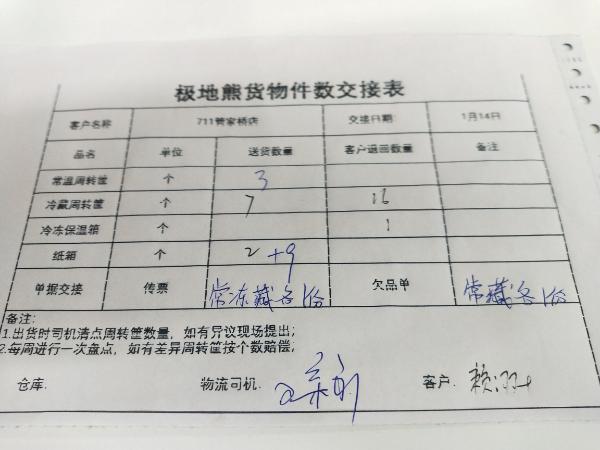 极地熊货物件数交接表
客户名称 711管家桥店 交接日期 1月14日
品名 单位 送货数量 客户退回数量 备注
常温周转筐 个 3
冷藏周转筐 个 7 16
冷冻保温箱 个 1
纸箱 个 2+9
单据交接 传票 常冻藏各1份 欠品单 常藏各1份
备注:
1.出货时司机清点周转筐数量，如有异议现场提出;
2.每周进行一次盘点，如有差异周转筐按个数赔偿;
仓库. 物流司机. 客户.